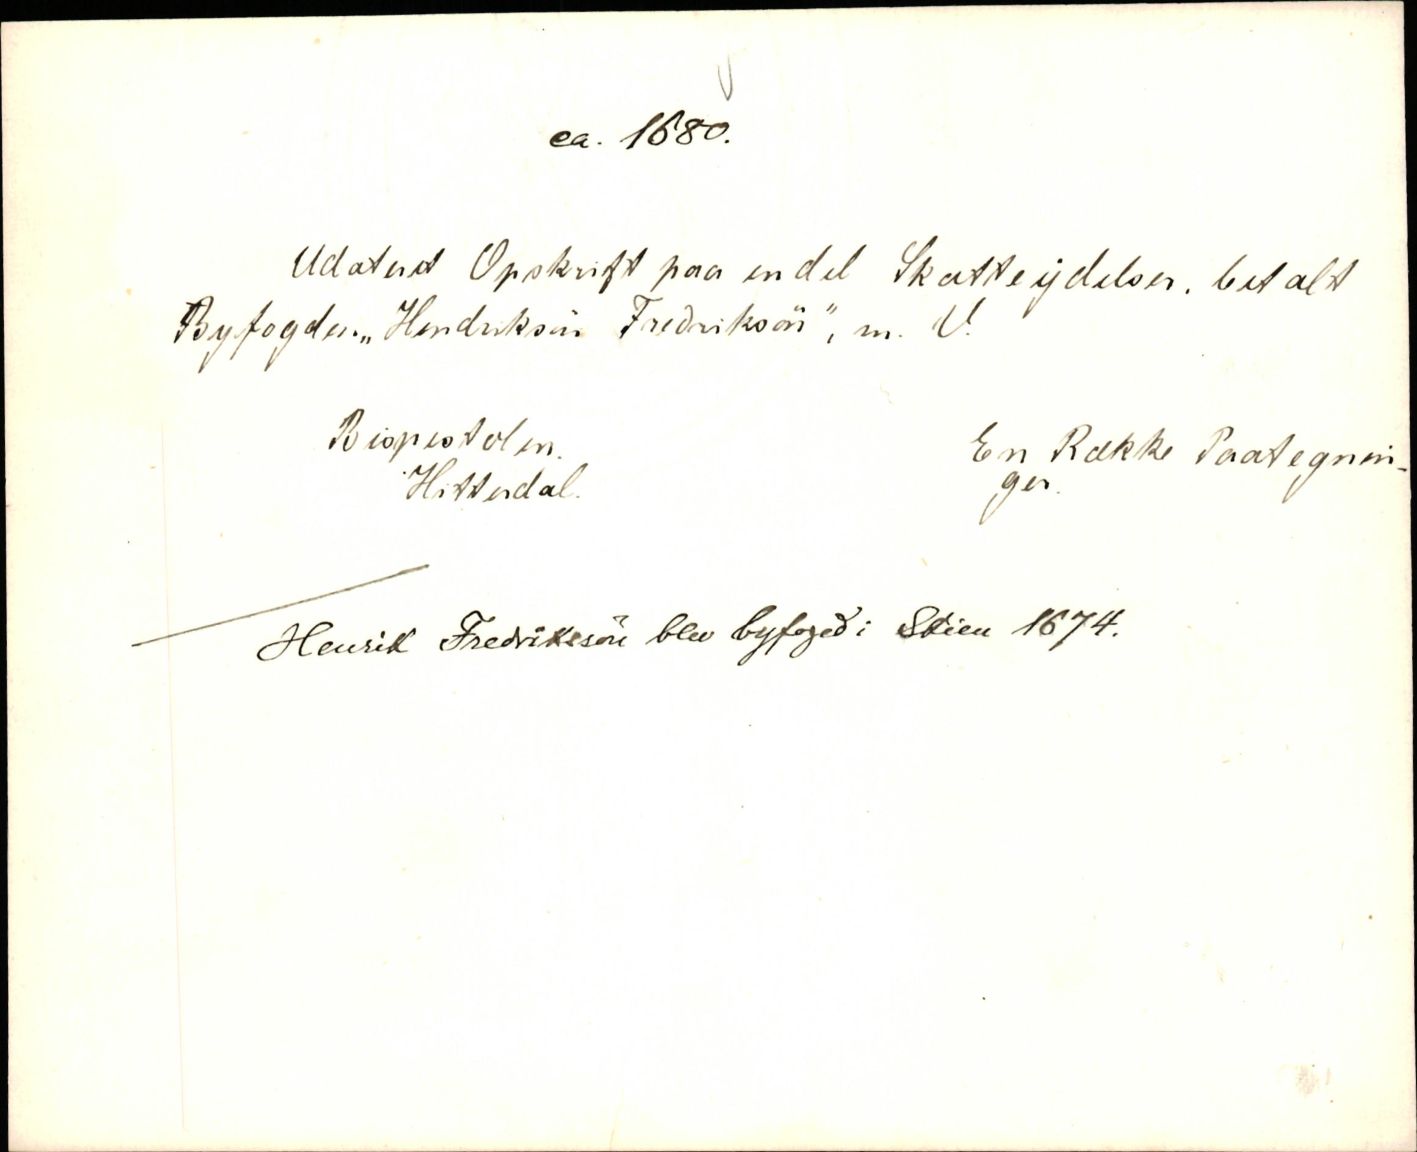 ca. 1680.
Udatert Opskrift paa endel Skatteydelser, betalt
Byfogden „Hendriksön Fredriksön", m. V.
Bispestolen.
Hitterdal.
En Række Paategnin-
ger.
Henrik Fredrikssön blev byfoged i Skien 1674.